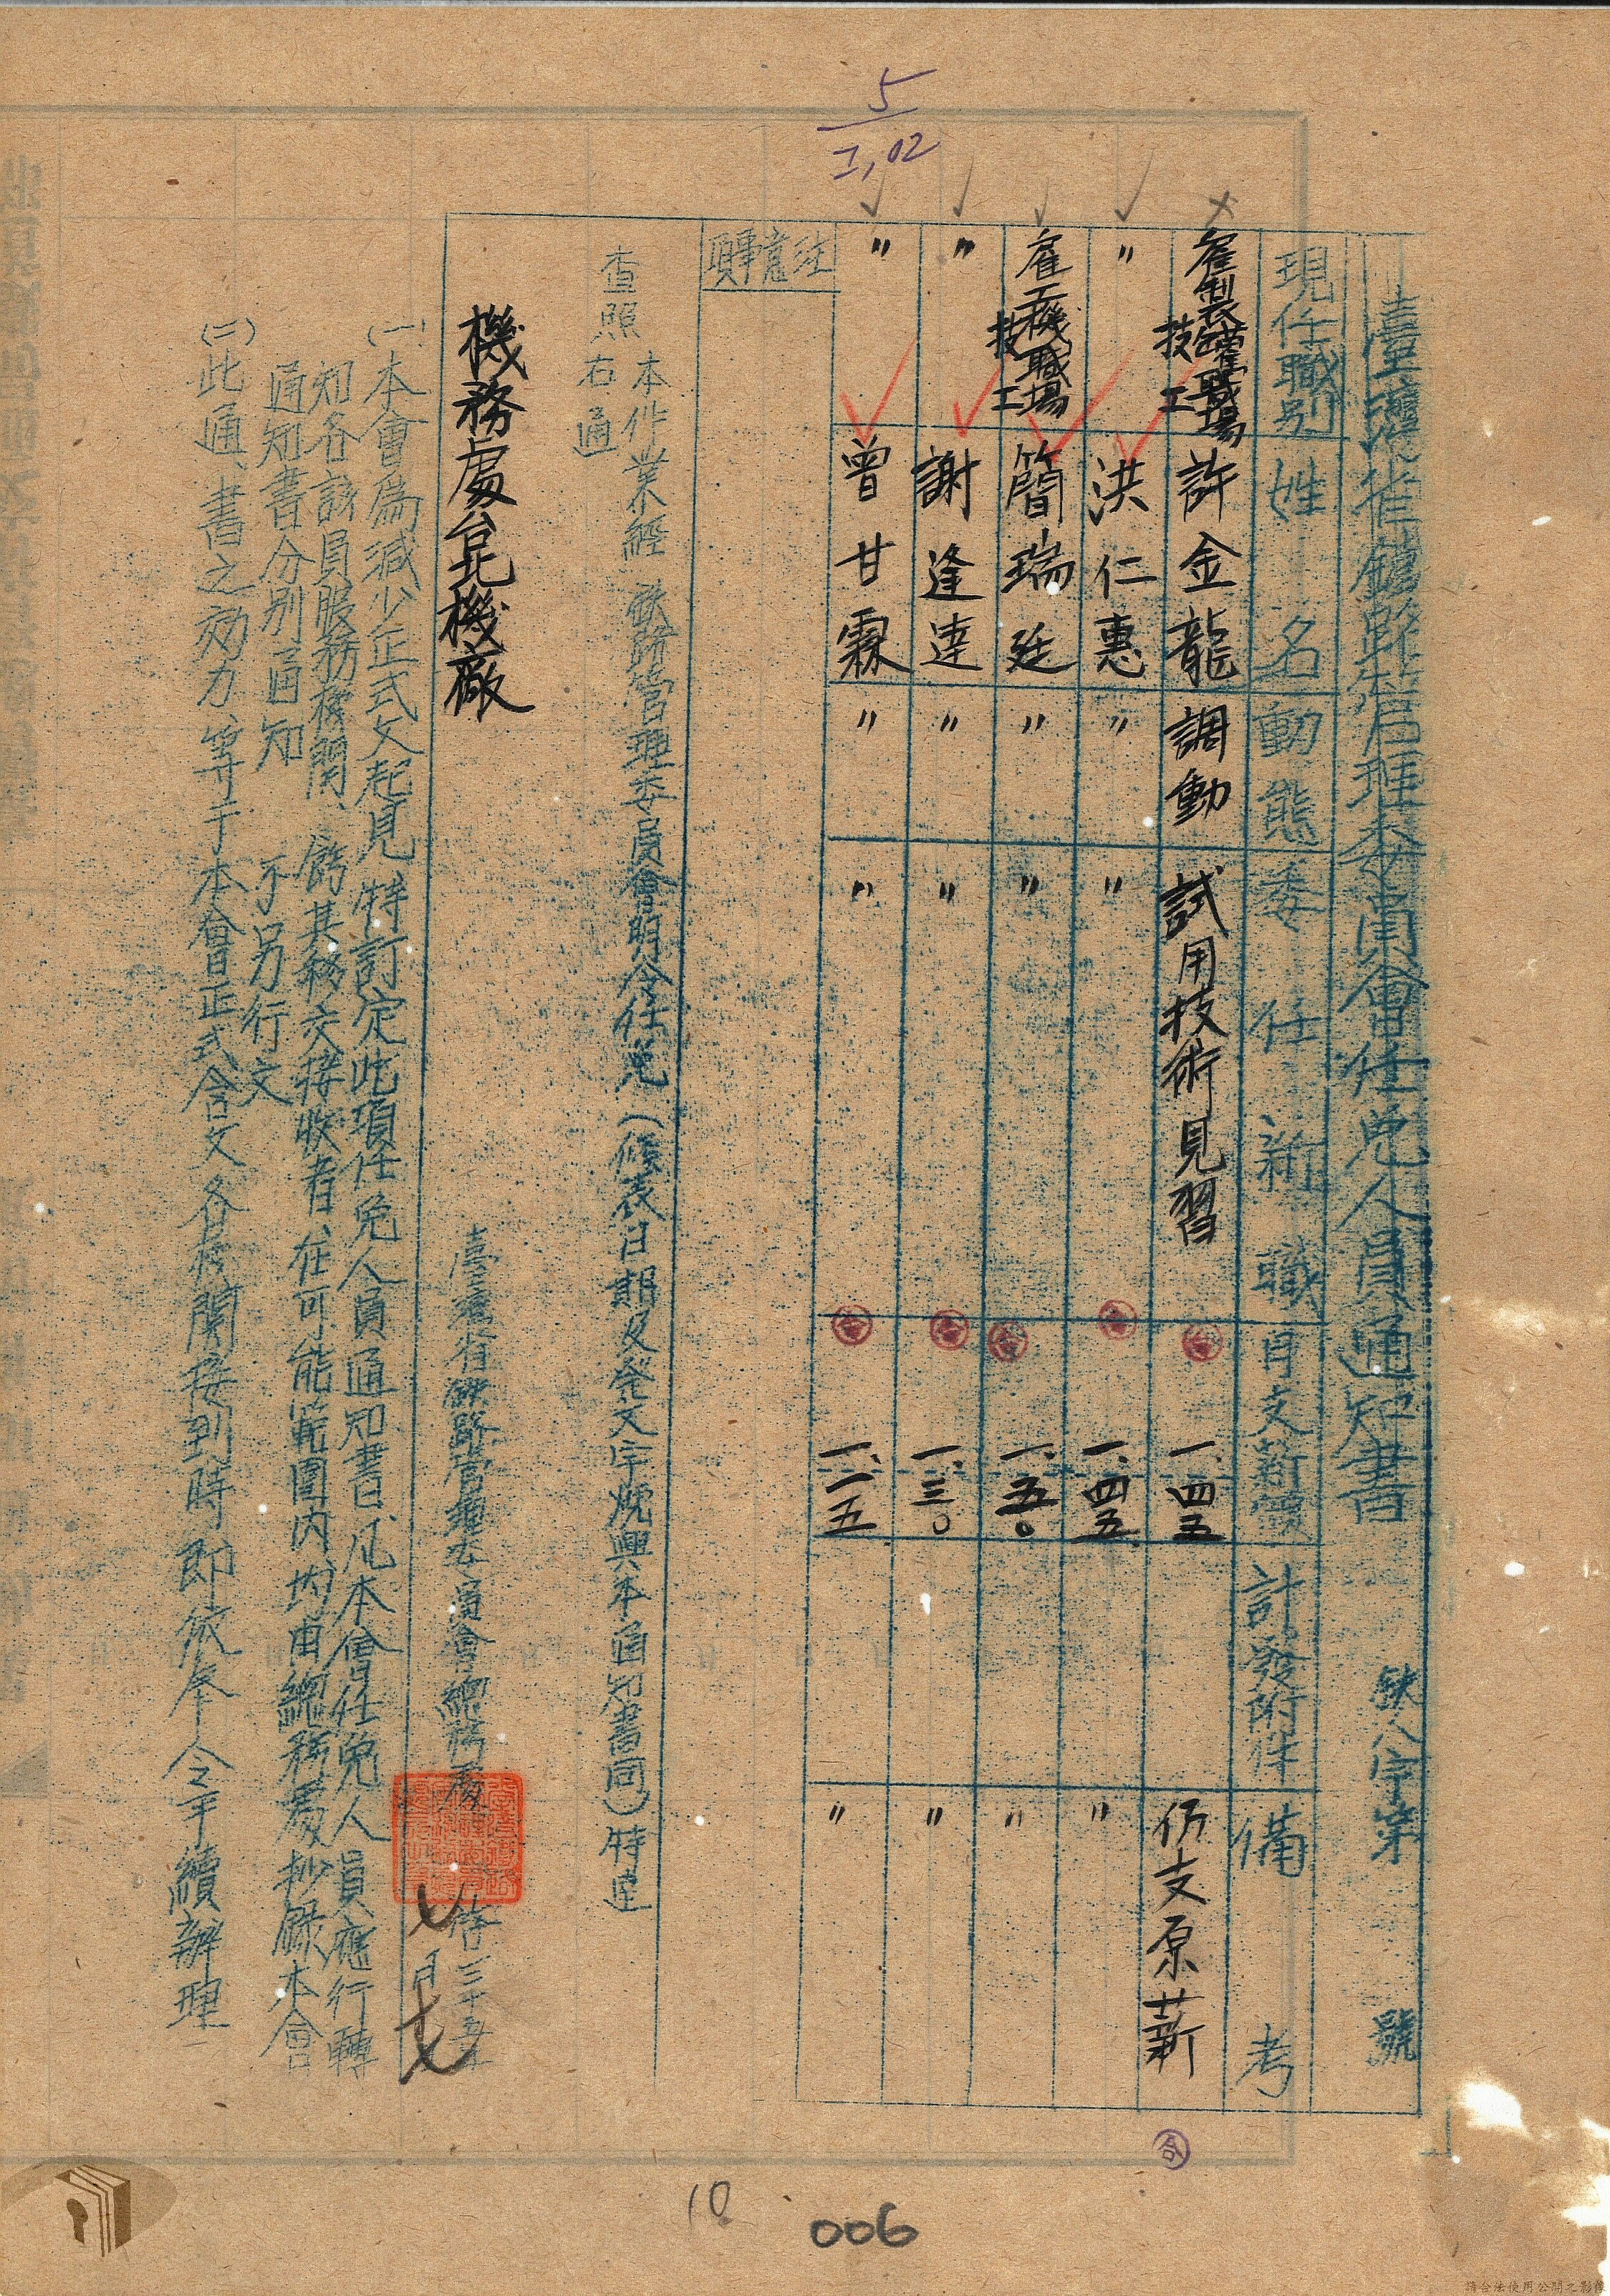 5
1,02
臺灣省鐵路管理委員會任免人員通知書 鉄人字第 號
現任職別 姓名 動態 委任新職 月支薪額 計發附件 備考
雇製罐職場技工 許金龍 調動 試用技術見習 一.四五 仍支原薪
〃 洪仁惠 〃 〃 一.四五 〃
雇工機職場技工 簡瑞廷 〃 〃 一.五〇 〃
〃 謝逢達 〃 〃 一.三〇 〃
〃 曾甘霖 〃 〃 一.一五 〃
注意事項
本件業經 鉄路管理委員會明令任免(候表日期及発文字號與本通知書同)特達
查照
右通
機務處台北機廠
臺灣省鉄路管理委員會總務處 啓 三十五年七月七
(一)本會為減少正式文起見特訂定此項任免人員通知書凡本會任免人員應行轉
知各該員服務機關飭其移交接收者在可能範圍内均由總務處抄錄本會
通知書分別通知 不另行文
(二)此通書之効力等于本會正式令文各機関接到時即依奉令手續辦理
10
006